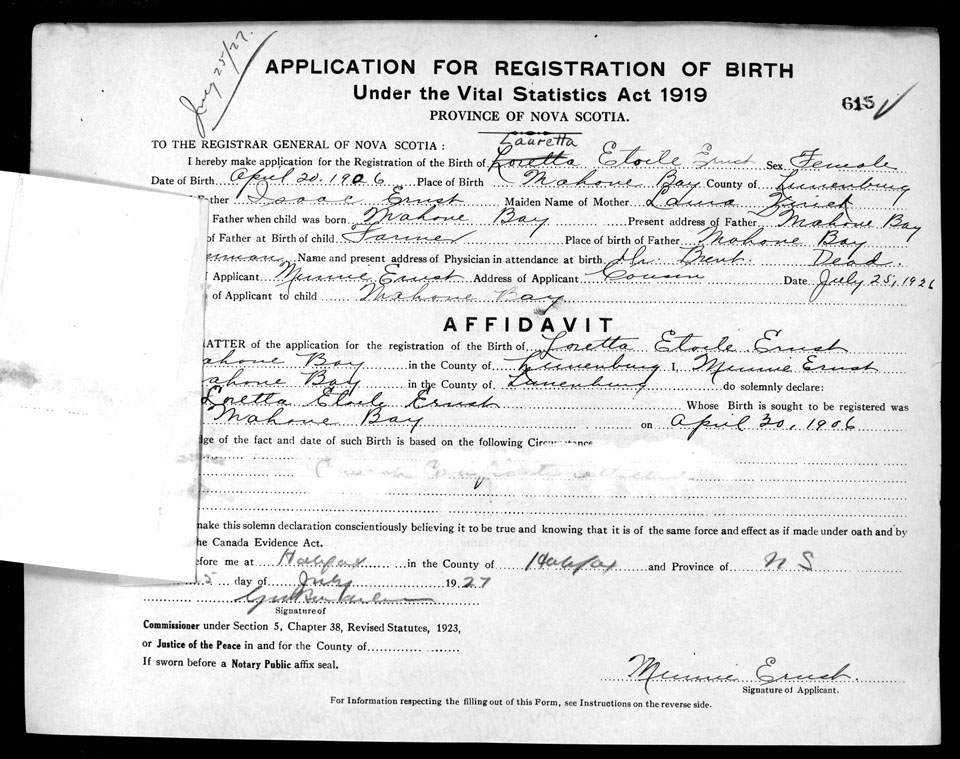 July 25/27.
APPLICATION FOR REGISTRATION OF BIRTH
Under the Vital Statistics Act 1919
615
PROVINCE OF NOVA SCOTIA.
Lauretta
TO THE REGISTRAR GENERAL OF NOVA SCOTIA:
I hereby make application for the Registration of the Birth of Loretta Etoile Ernst Sex Female
Date of Birth April 20. 1906 Place of Birth Mahone Bay County of Lunenburg
Father Isaac Ernst Maiden Name of Mother Laura
Father when child was born. Mahone Bay Present address of Father Mahone Bay
of Father at Birth of child. Farmer Place of birth of Father Mahone Bay
Name and present address of Physician in attendance at birth. Dead.
Applicant Minnie Ernst Address of Applicant Cousin Date July 25, 1926
of Applicant to child Mahone Bay
AFFIDAVIT
ATTER of the application for the registration of the Birth of Loretta Etoile Ernst
ahone Bay in the County of Lunenburg I, Minnie Ernst
ahone Bay in the County of Lunenburg do solemnly declare:
Loretta Etoile Ernst Whose Birth is sought to be registered was
Mahone Bay on April 30, 1906
ge of the fact and date of such Birth is based on the following Circumstance
make this solemn declaration conscientiously believing it to be true and knowing that it is of the same force and effect as if made under oath and by
he Canada Evidence Act.
efore me at Halifax in the County of Halifax and Province of N S
5 day of July 1927
Signature of
Commissioner under Section 5, Chapter 38, Revised Statutes, 1923,
or Justice of the Peace in and for the County of
If sworn before a Notary Public affix seal.
Minnie Ernst.
Signature of Applicant.
For Information respecting the filling out of this Form, see Instructions on the reverse side.